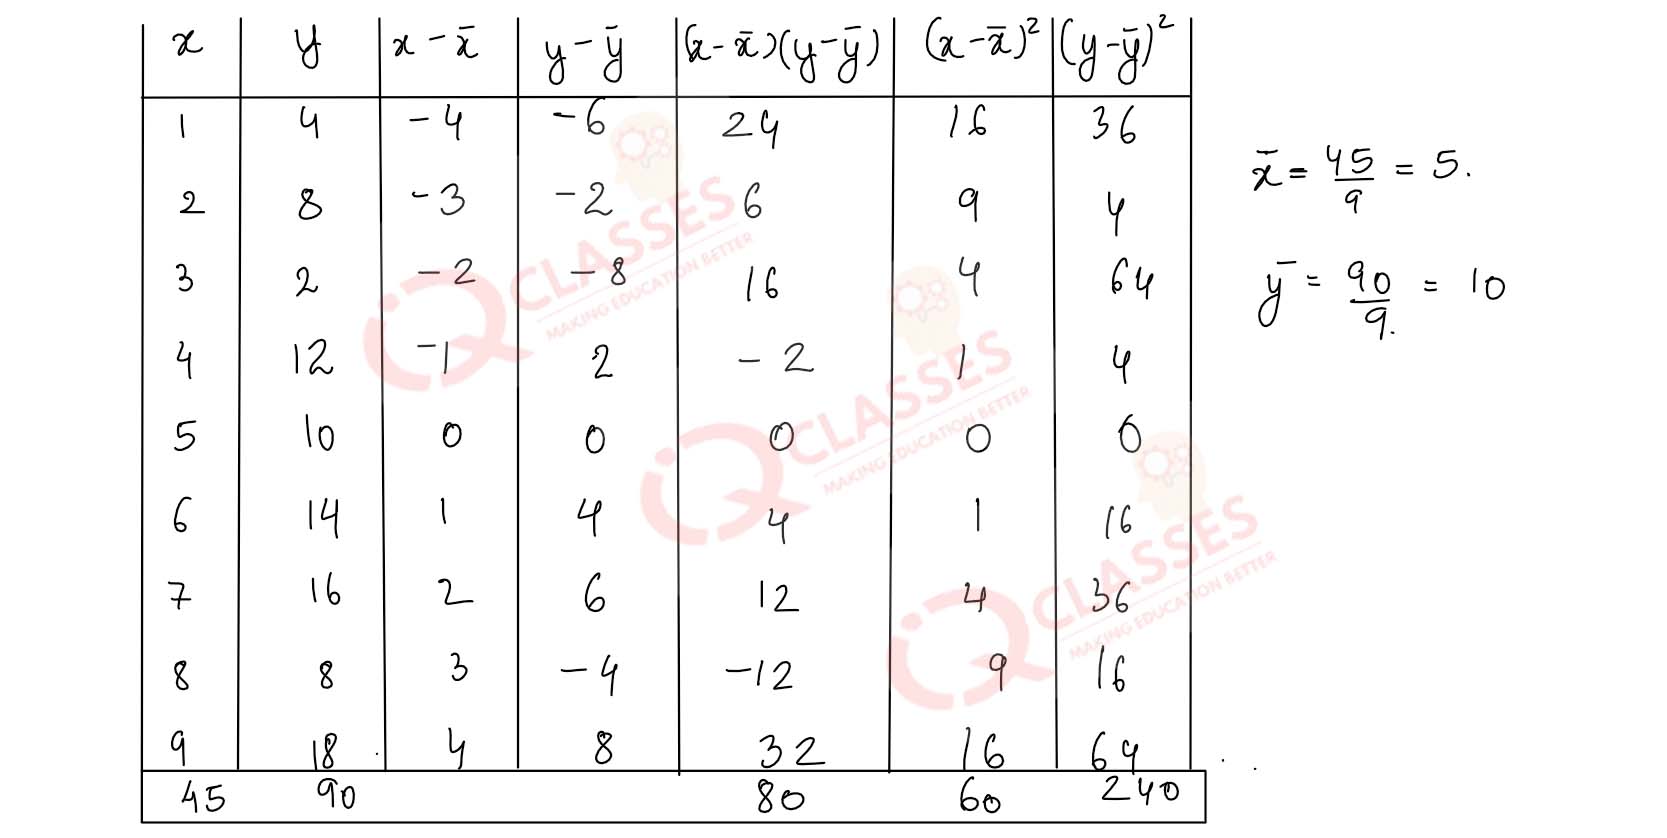 x y x - x̄ y - ȳ (x - x̄)(y - ȳ) (x - x̄)² (y - ȳ)²
1 4 -4 -6 24 16 36
2 8 -3 -2 6 9 4
3 2 -2 -8 16 4 64
4 12 -1 2 -2 1 4
5 10 0 0 0 0 0
6 14 1 4 4 1 16
7 16 2 6 12 4 36
8 8 3 -4 -12 9 16
9 18 4 8 32 16 64
45 90 80 60 240
x̄ = 45/9 = 5.
ȳ = 90/9. = 10
iQ CLASSES
MAKING EDUCATION BETTER
iQ CLASSES
MAKING EDUCATION BETTER
iQ CLASSES
MAKING EDUCATION BETTER